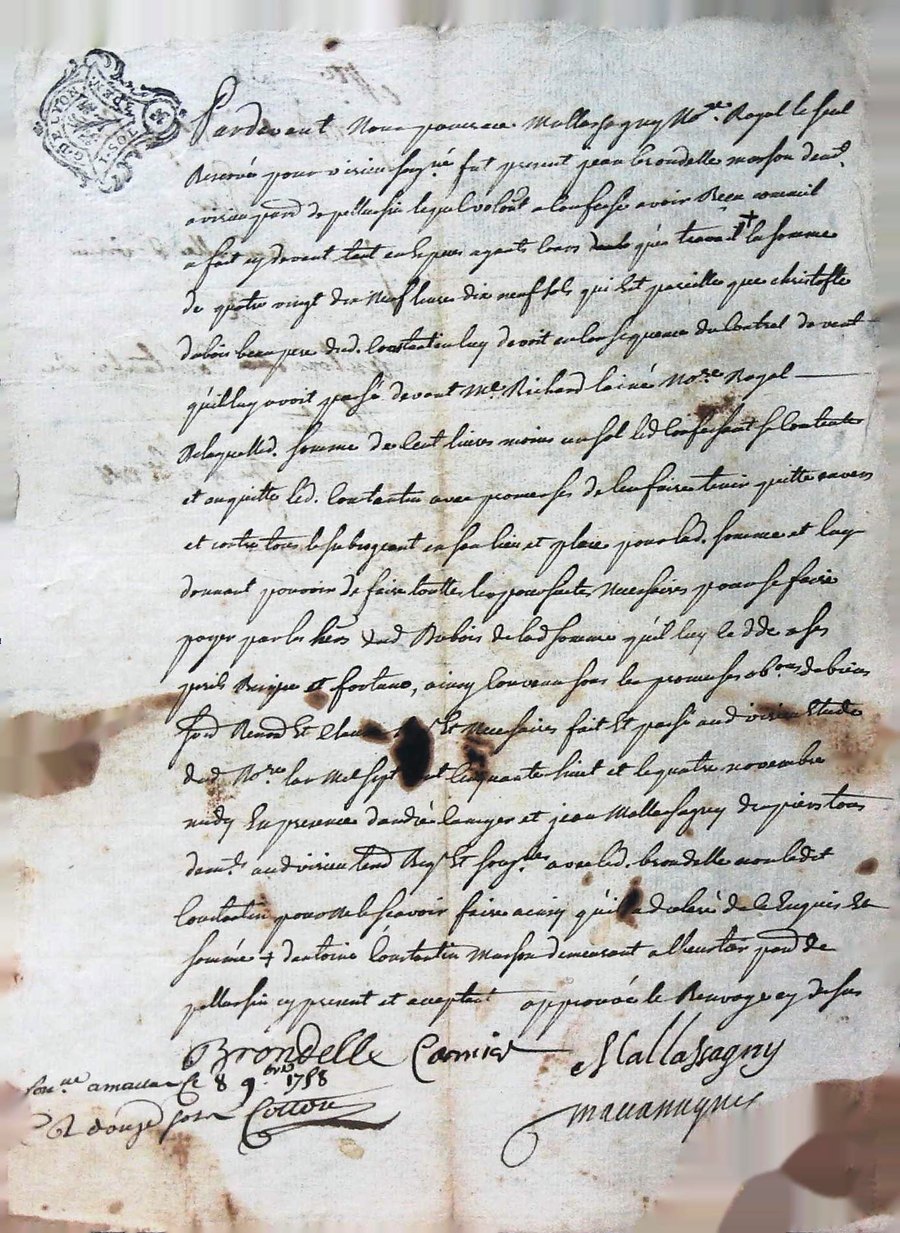 G. DE LYON
Pardevant Nous Mallassagny No.re Royal le seul
Reservé pour virieu soug.né fut present jean brondelle masson dem.t
a virieu paroisse de pellussin lequel a confessé avoir Receu comme il
a fait cy devant tant en espèces ayants cours que travail + la somme
de quatre vingt dix Neuf livres dix neuf sols qui est pareille que christofle
dubois beau pere dud. Constantin luy devoit en consequence du Contrat de vent
qu'il luy avoit passé devant M.e Richard l'ainé No.re Royal
De laquelle d. somme de Cent livres moins un sol led. Confessant se Contente
et en quitte led. Constantin avec promesses de l'en faire tenir quitte envers
et contre tous le subrogeant en son lieu et place pour lad. somme et luy
donnant pouvoir de faire toutte les poursuites Necessaires pour se faire
payer par les hérs dud Dubois de lad somme qu'il luy cedde a ses
perils Risque et fortune, ainsy Convenu sous les promesses ob.ons de biens
Renon.s Et Clau Et Necessaires fait Et passé aud virieu Etude
dud No.re l'an Mil sept cent Cinquante huit et le quatre novembre
midy En presence d'andré et jean Mallassagny
dem.ts aud virieu Req.s Et soug.nés avec led. brondelle non ledit
Constantin pour Ne le scavoir faire ainsy qu'il a declaré de ce Enquis Et
sommé + d'antoine Constantin Masson demeurant a paroisse de
pellussin cy present et acceptant approuvé le Renvoye cy dessus
Brondelle Mallassagny
Con.llé a Ce 8 9.bre 1758
R douze sols Cottou